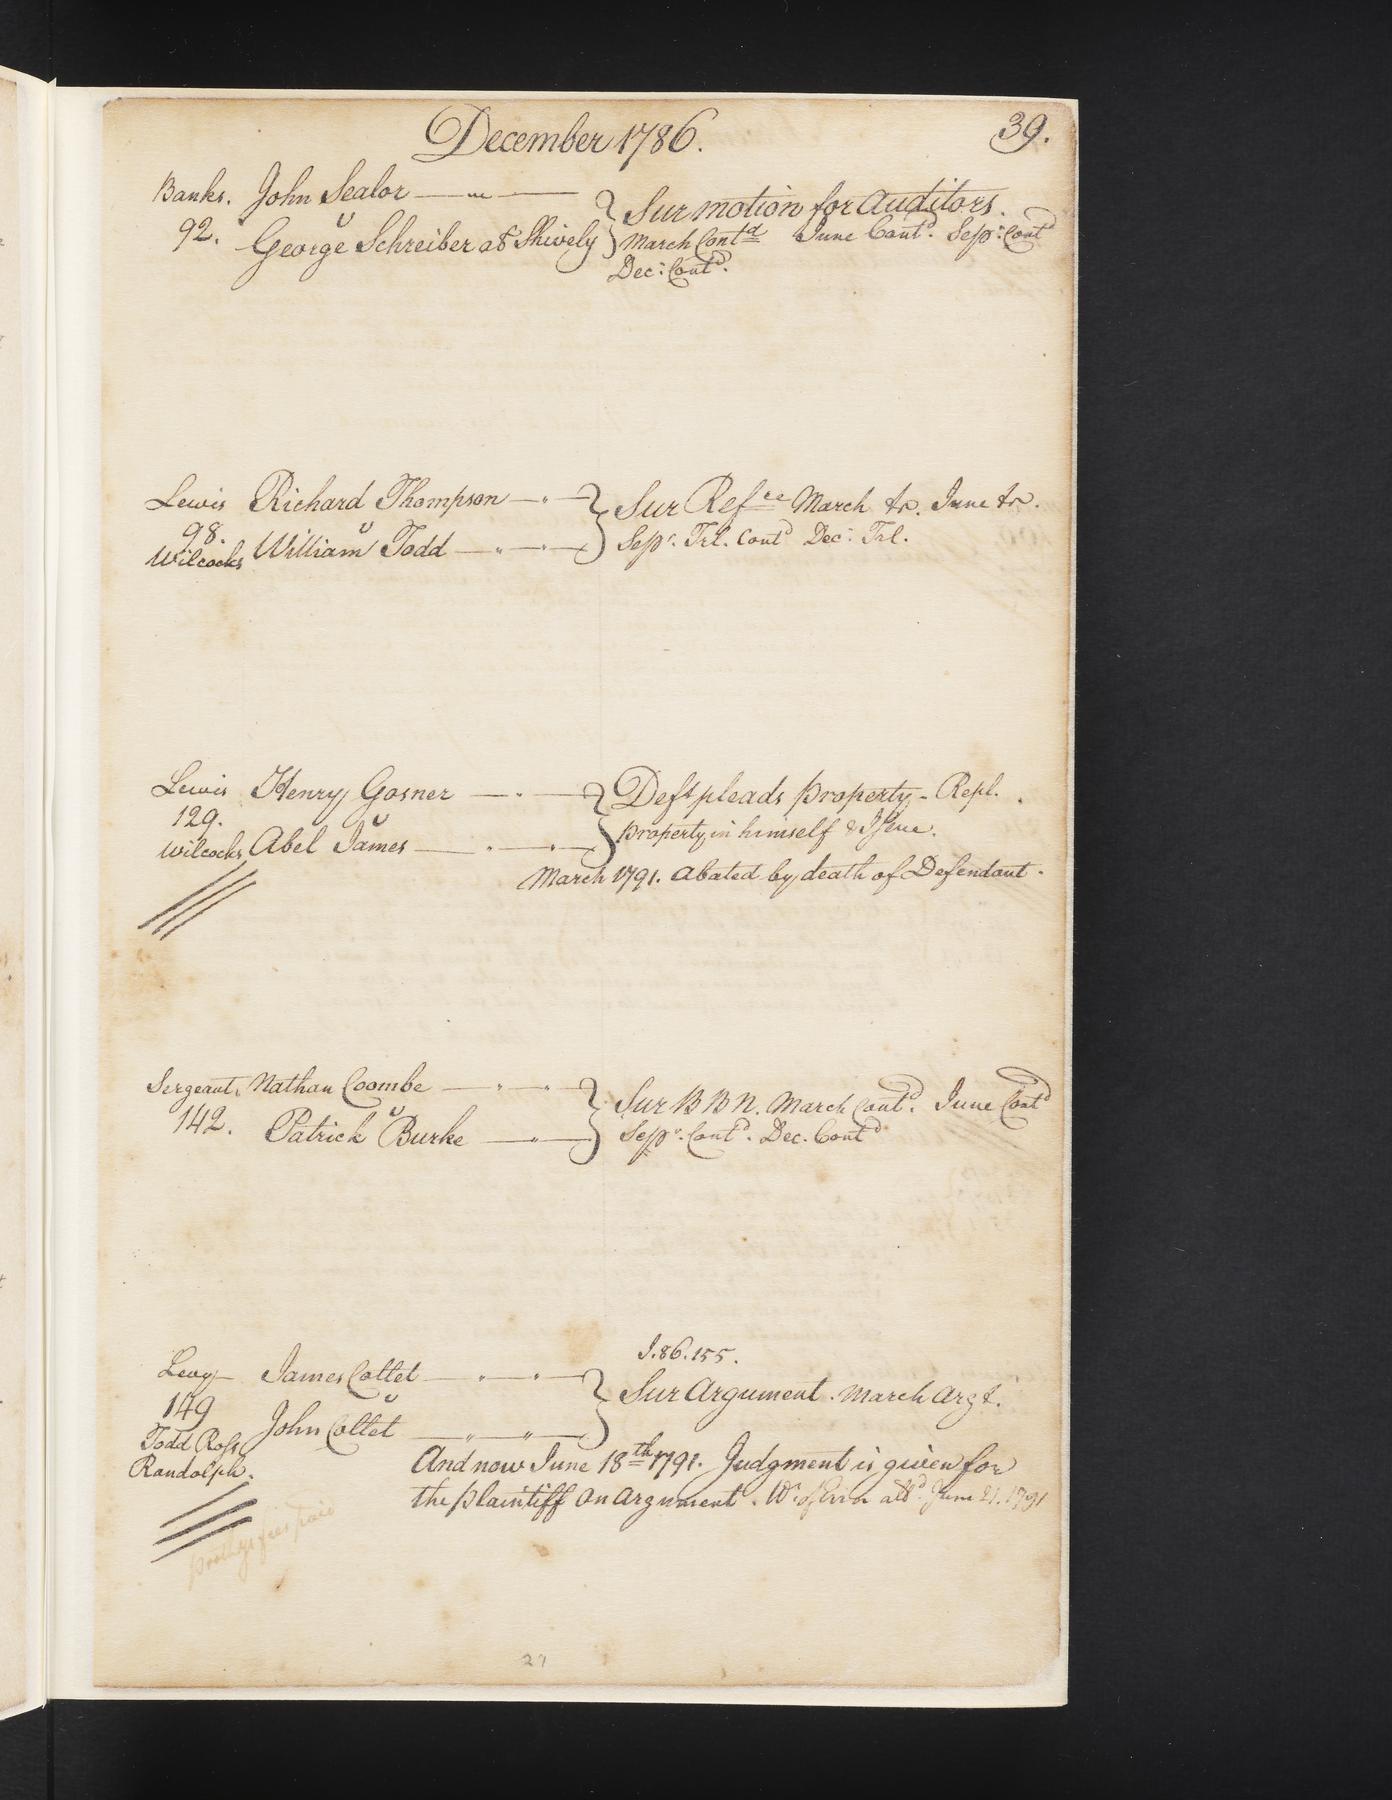 December 1786. 39.
Banks. John Sealor
v
92. George Schreiber als Shively
Sur motion for Auditors.
March Contd June Contd. Sepr: Contd
Dec: Contd.
Lewis Richard Thompson
98. v
Wilcocks William Todd
Sur Refce March do. June do.
Sepr. Trl. Contd Dec: Trl.
Lewis Henry Gosner
129. v
Wilcocks Abel James
Deft pleads property - Repl.
property in himself & Issue.
March 1791. Abated by death of Defendant.
Sergeant. Nathan Coombe
142. v
Patrick Burke
Sur B B N. March Contd. June Contd
Sepr. Contd. Dec. Contd
J.86.155.
Levy James Collet
149 v
John Collet
Todd Ross
Randolph.
Sur Argument. March Argt.
And now June 18th 1791. Judgment is given for
the plaintiff on argument. Wt of Error alld. June 21. 1791
prothys fees paid
27